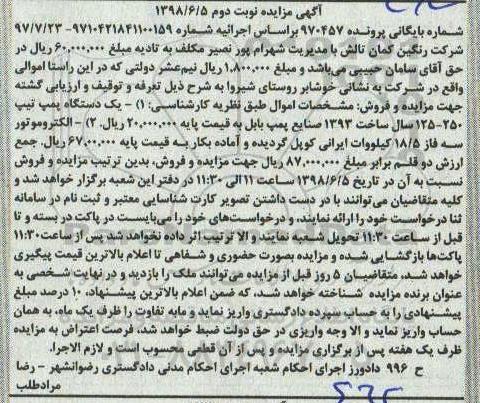 آگهی مزایده نوبت دوم ۱۳۹۸/۶/۵
شماره بایگانی پرونده ۹۷۰۴۵۷ براساس اجرائیه شماره ۹۷۱۰۴۲۱۸۴۱۱۰۰۱۵۹- ۹۷/۷/۲۳
شرکت رنگین کمان تالش با مدیریت شهرام پور نصیر مکلف به تادیه مبلغ ۶۰،۰۰۰،۰۰۰ ریال در
حق آقای سامان حبیبی می‌باشد و مبلغ ۱،۸۰۰،۰۰۰ ریال نیم‌عشر دولتی که در این راستا اموالی
واقع در شرکت به نشانی خوشابر روستای شیروا به شرح ذیل تعرفه و توقیف و ارزیابی گشته
جهت مزایده و فروش: مشخصات اموال طبق نظریه کارشناسی: ۱) - یک دستگاه پمپ تیپ
۲۵۰-۱۲۵ سال ساخت ۱۳۹۳ صنایع پمپ بابل به قیمت پایه ۲۰،۰۰۰،۰۰۰ ریال. ۲) - الکتروموتور
سه فاز ۱۸/۵ کیلووات ایرانی کوپل گردیده و آماده بکار به قیمت پایه ۶۷،۰۰،۰۰۰ ریال. جمع
ارزش دو قلم برابر مبلغ ۸۷،۰۰۰،۰۰۰ ریال جهت مزایده و فروش، بدین ترتیب مزایده و فروش
نسبت به آن در تاریخ ۱۳۹۸/۶/۵ ساعت ۱۱ الی ۱۱:۳۰ در دفتر این شعبه برگزار خواهد شد و
کلیه متقاضیان می‌توانند با در دست داشتن تصویر کارت شناسایی معتبر و ثبت نام در سامانه
ثنا درخواست خود را ارائه نمایند، و درخواست‌های خود را می‌بایست در پاکت در بسته و تا
قبل از ساعت ۱۱:۳۰ تحویل شعبه نمایند و الا ترتیب اثر داده نخواهد شد. پس از ساعت ۱۱:۳۰
پاکت‌ها بازگشایی شده و مزایده بصورت حضوری و شفاهی تا اعلام بالاترین قیمت پیگیری
خواهد شد، متقاضیان ۵ روز قبل از مزایده می‌توانند ملک را بازدید و در نهایت شخصی به
عنوان برنده مزایده شناخته خواهد شد، که ضمن اعلام بالاترین پیشنهاد، ۱۰ درصد مبلغ
پیشنهادی را به حساب سپرده دادگستری واریز نماید و مابه تفاوت را ظرف یک ماه، به همان
حساب واریز نماید و الا وجه واریزی در حق دولت ضبط خواهد شد، فرصت اعتراض به مزایده
ظرف یک هفته پس از برگزاری مزایده و پس از آن قطعی محسوب است و لازم الاجرا.
ح ۹۹۶ دادورز اجرای احکام شعبه اجرای احکام مدنی دادگستری رضوانشهر - رضا
مرادطلب